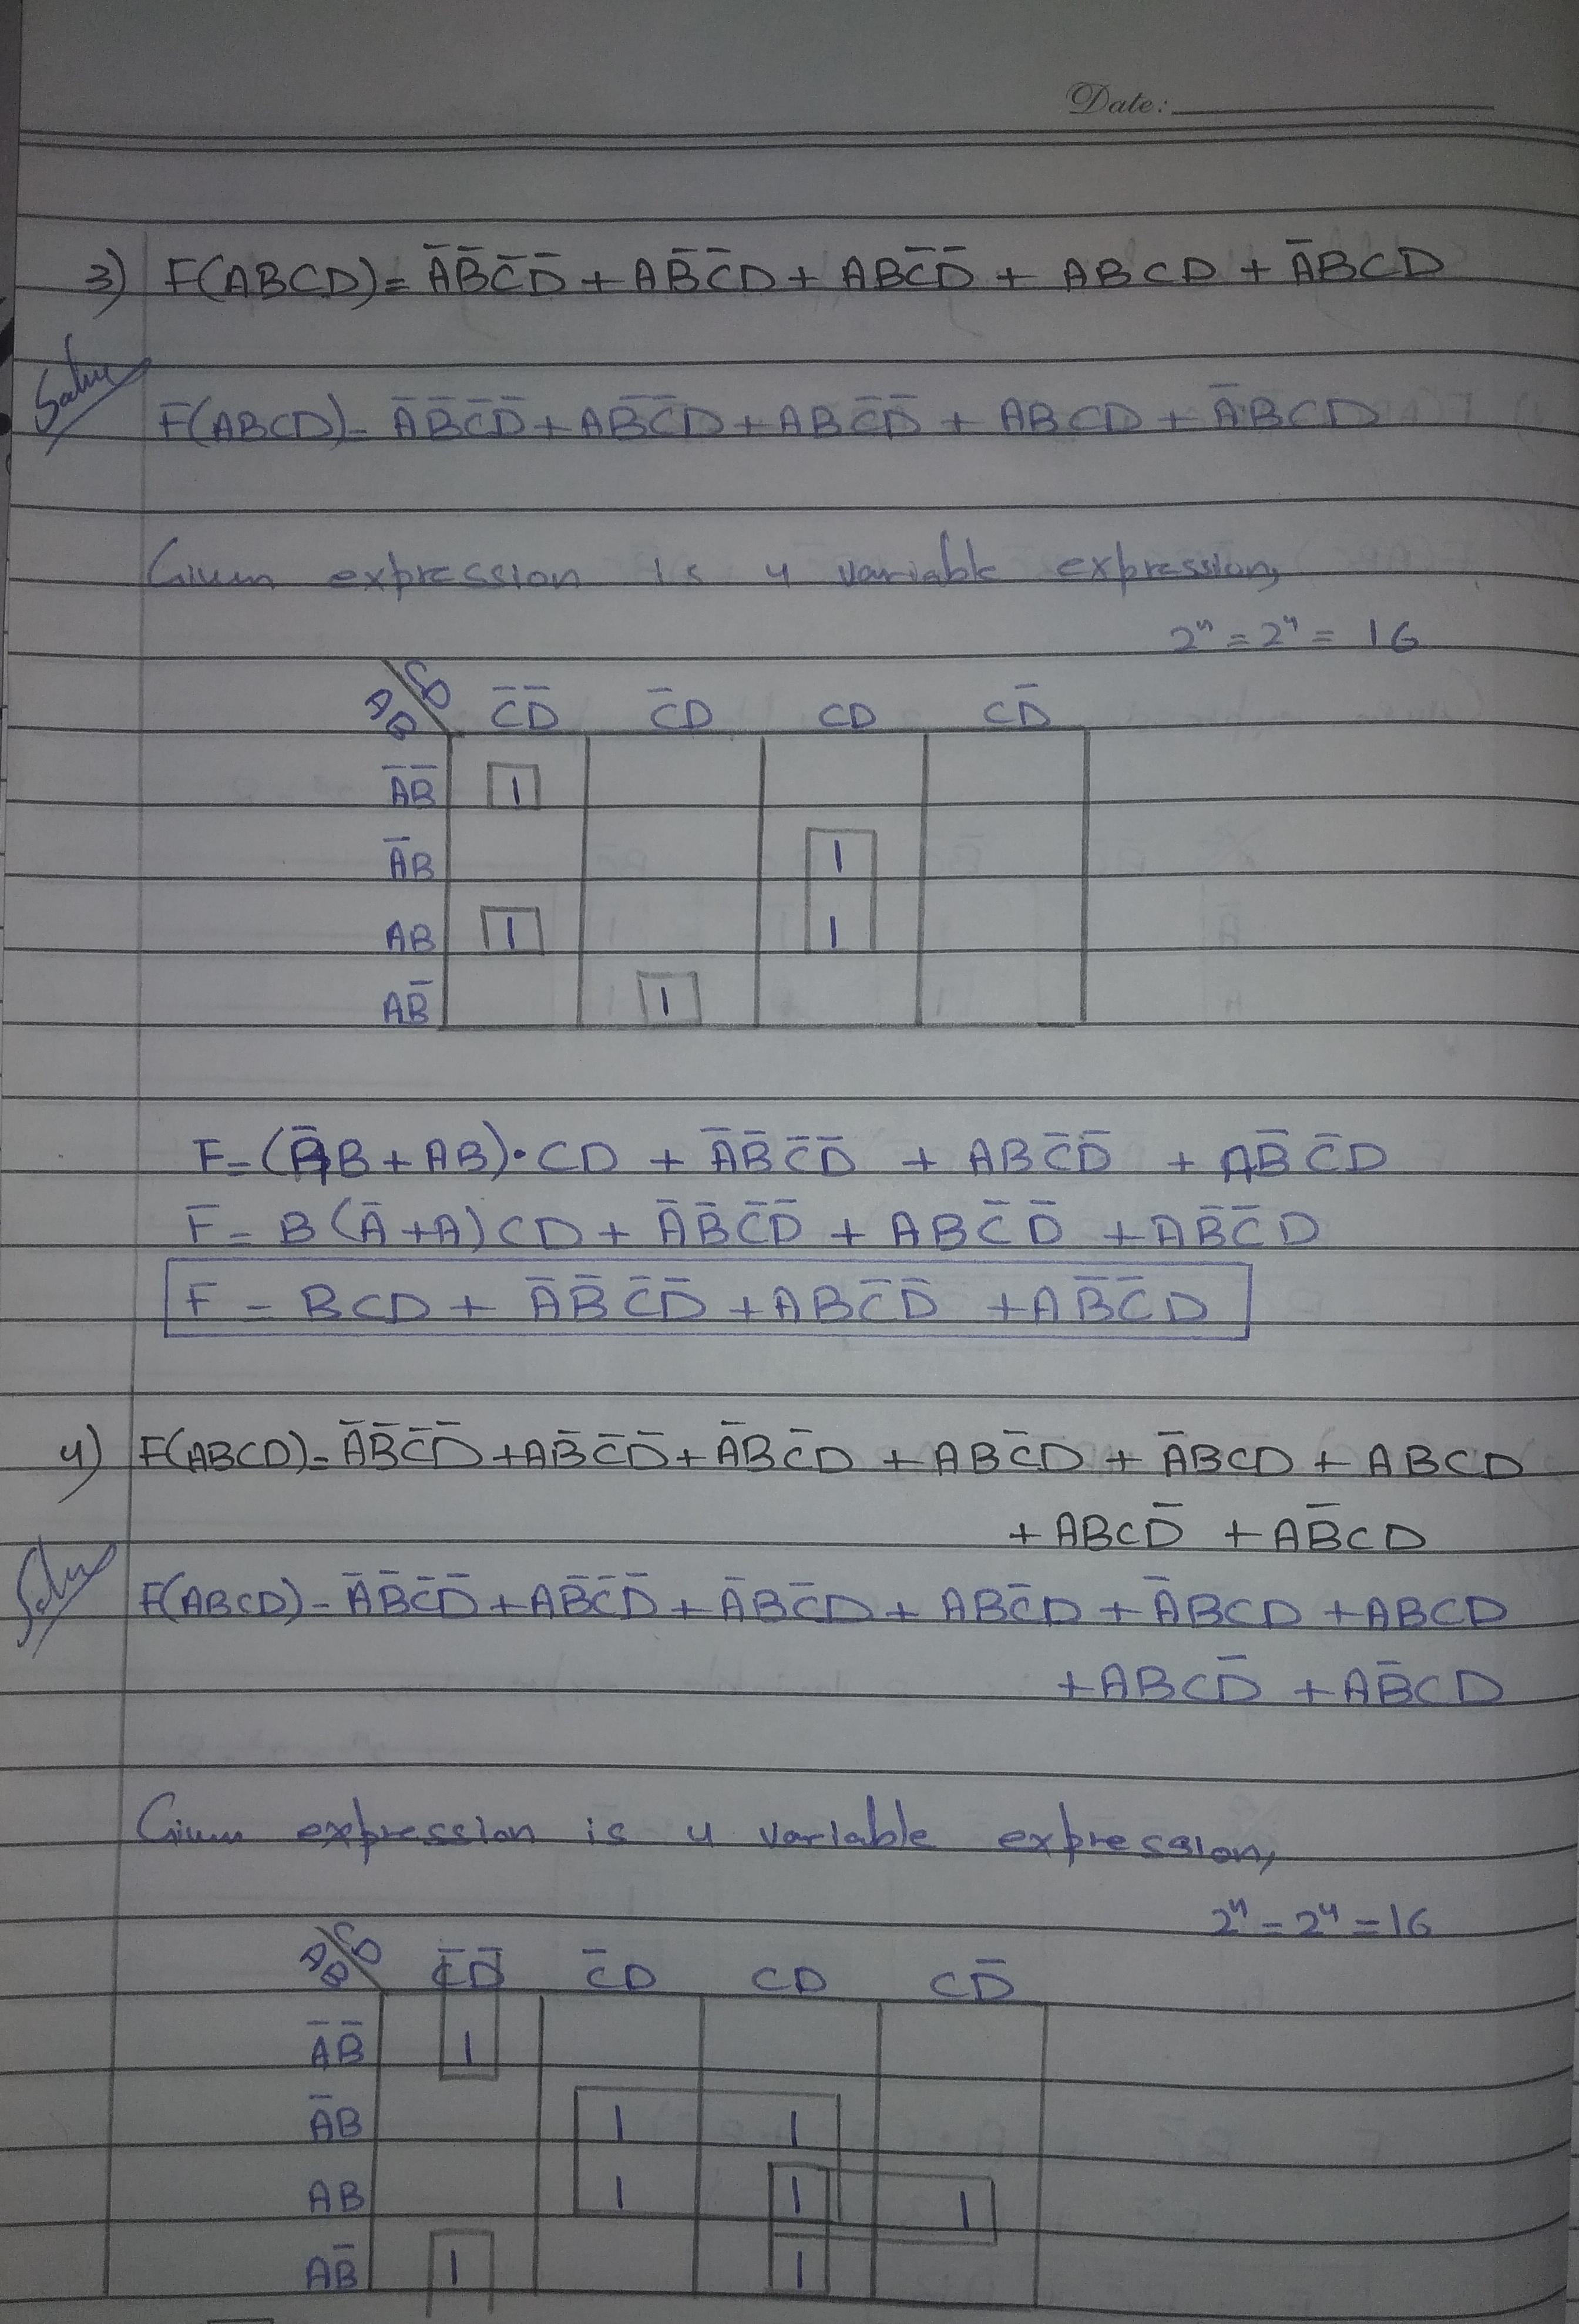 Date:
3) F(ABCD) = A̅B̅C̅D̅ + AB̅C̅D + ABC̅D̅ + ABCD + A̅BCD
F(ABCD) = A̅B̅C̅D̅ + AB̅C̅D + ABC̅D̅ + ABCD + A̅BCD
Given expression is 4 variable expression,
2ⁿ = 2⁴ = 16
AB CD C̅D̅ C̅D CD CD̅
A̅B̅ 1
A̅B 1
AB 1 1
AB̅ 1
F = (A̅B + AB)·CD + A̅B̅C̅D̅ + ABC̅D̅ + AB̅C̅D
F = B(A̅ + A)CD + A̅B̅C̅D̅ + ABC̅D̅ + AB̅C̅D
F = BCD + A̅B̅C̅D̅ + ABC̅D̅ + AB̅C̅D
4) F(ABCD) = A̅B̅C̅D̅ + AB̅C̅D̅ + A̅BC̅D + ABC̅D + A̅BCD + ABCD
+ ABCD̅ + AB̅CD
F(ABCD) = A̅B̅C̅D̅ + AB̅C̅D̅ + A̅BC̅D + ABC̅D + A̅BCD + ABCD
+ ABCD̅ + AB̅CD
Given expression is 4 variable expression,
2ⁿ = 2⁴ = 16
AB CD C̅D̅ C̅D CD CD̅
A̅B̅ 1
A̅B 1 1
AB 1 1 1
AB̅ 1 1